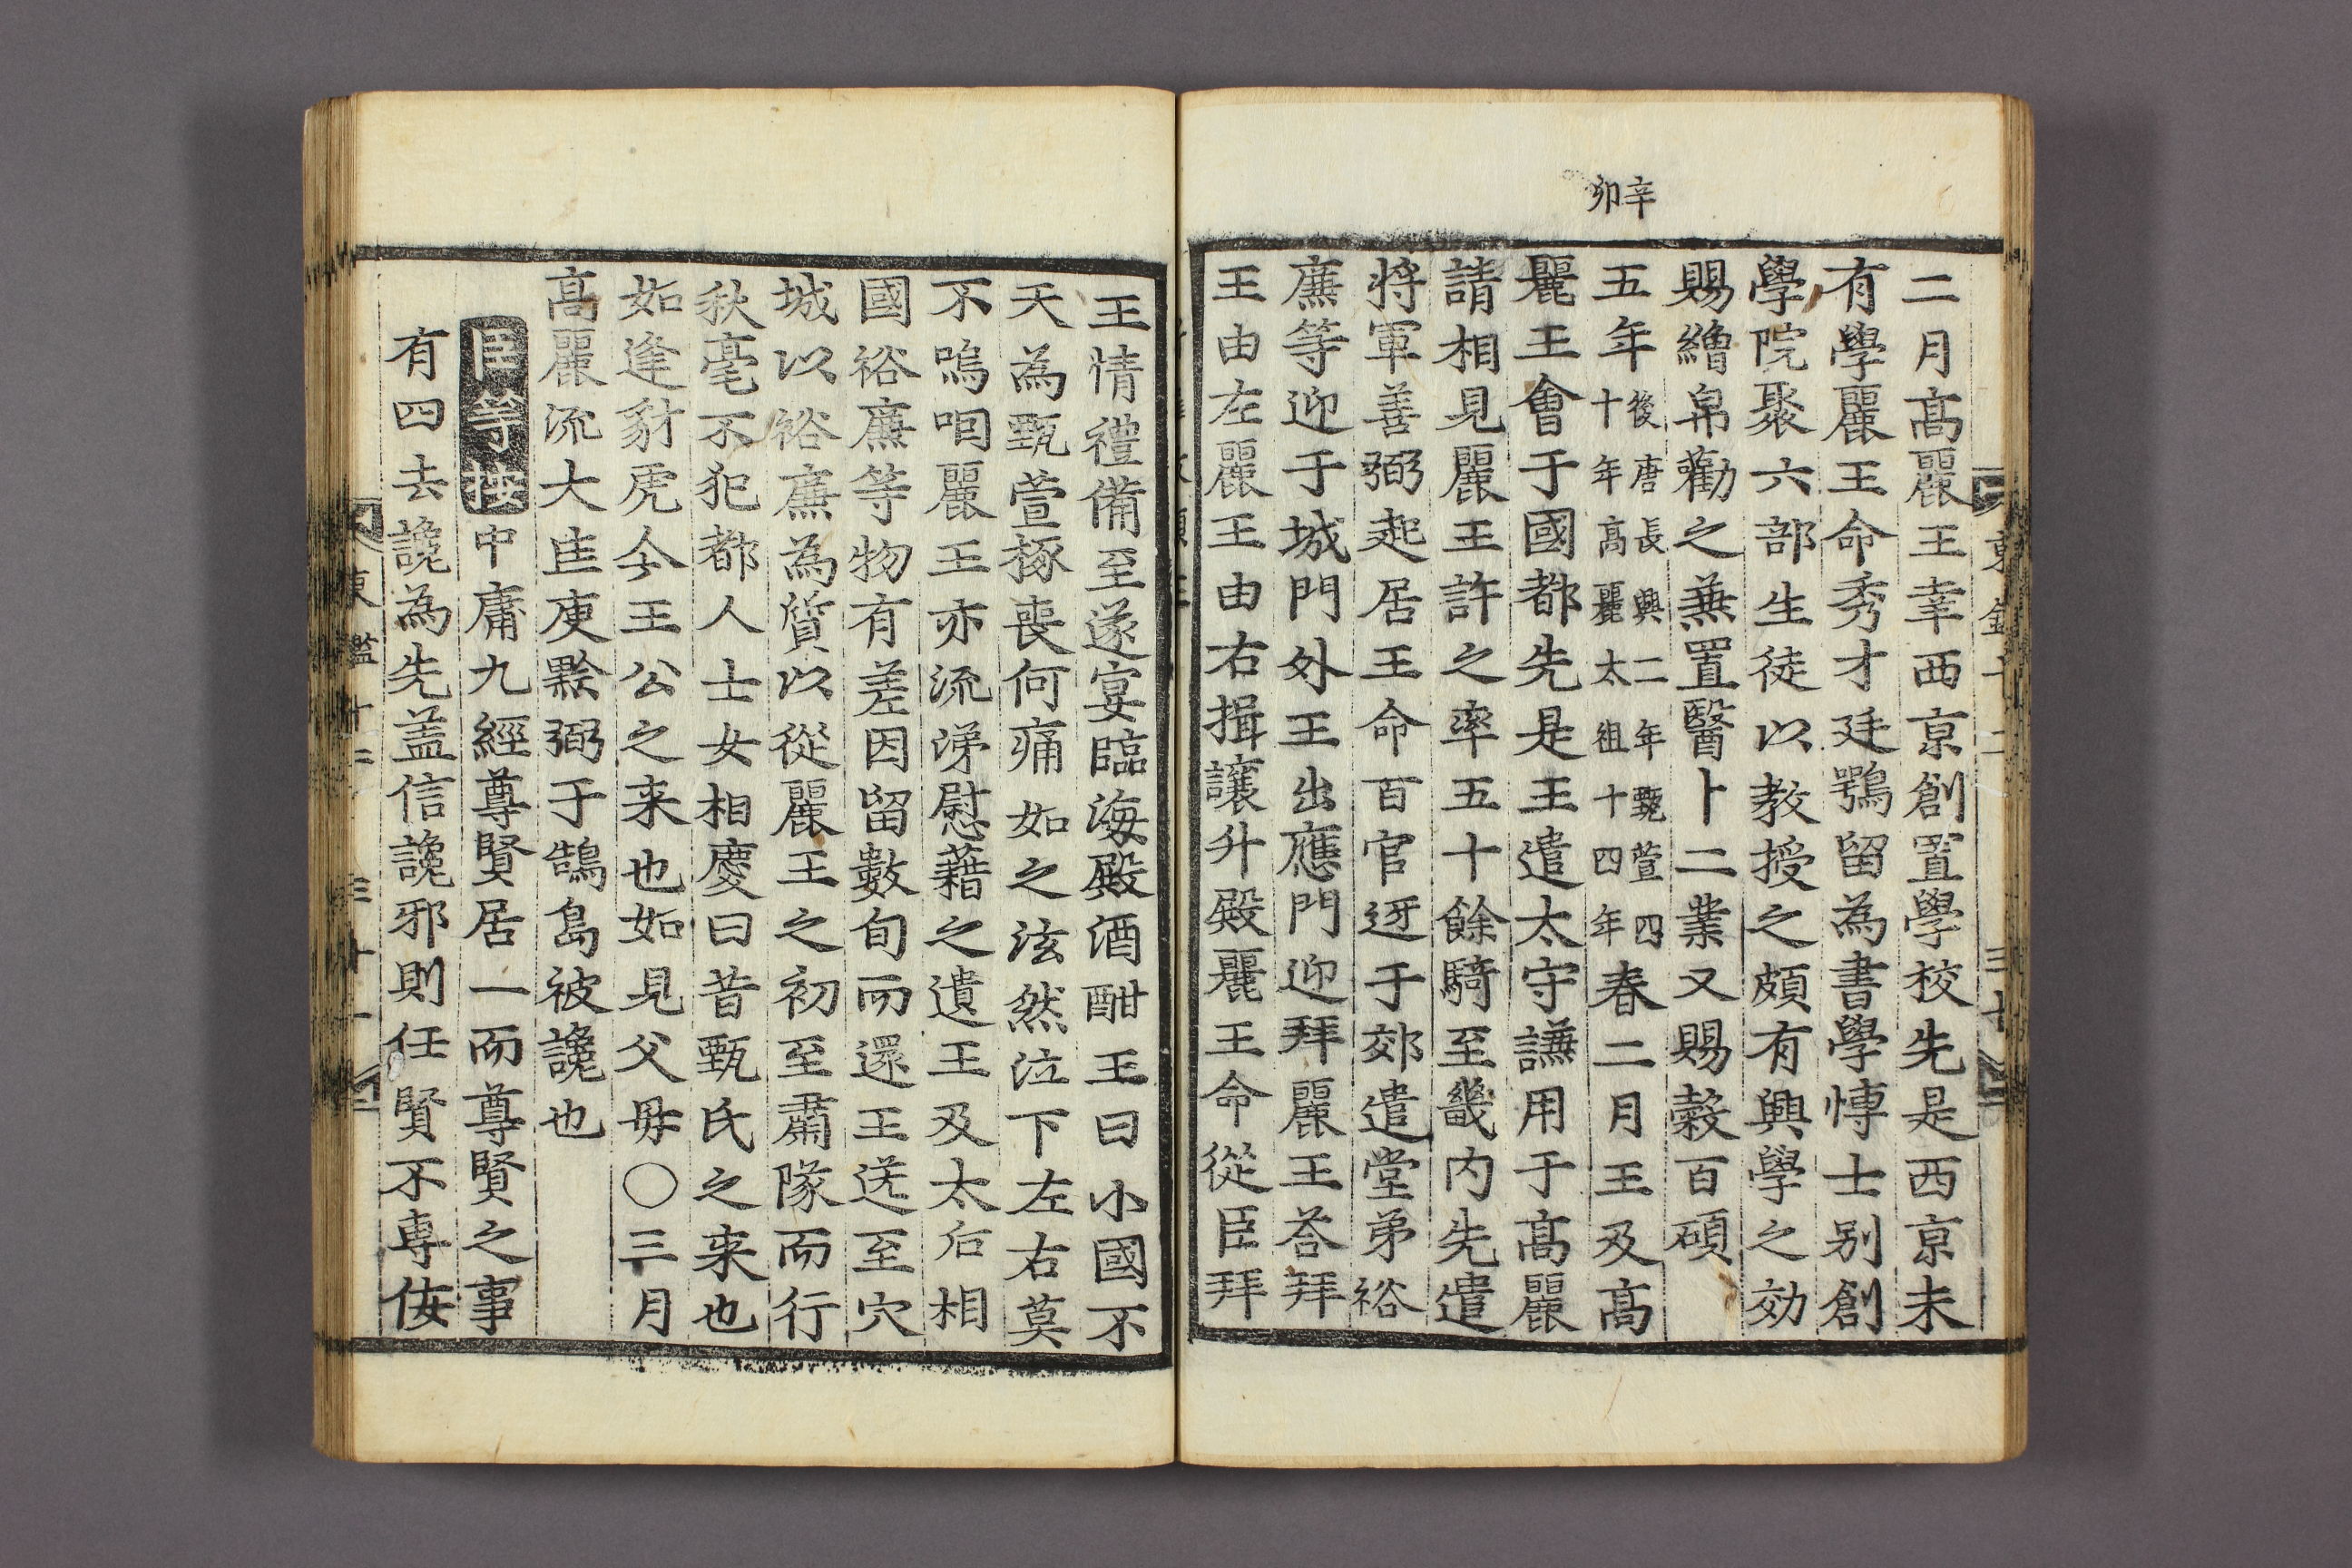 辛卯
二月高麗王幸西京創置學校先是西京未
有學麗王命秀才廷鶚留為書學愽士别創
學院聚六部生徒以教授之頗有興學之効
賜繒帛勸之兼置醫卜二業又賜穀百碩
五年後唐長興二年甄萱四十年高麗太祖十四年春二月王及高
麗王會于國都先是王遣太守謙用于高麗
請相見麗王許之率五十餘騎至畿内先遣
將軍善弼起居王命百官迓于郊遣堂弟裕
廉等迎于城門外王出應門迎拜麗王荅拜
王由左麗王由右揖讓升殿麗王命從臣拜
王情禮備至遂宴臨海殿酒酣王曰小國不
天為甄萱椓喪何痛如之泫然泣下左右莫
不嗚咽麗王亦流涕慰藉之遺王及太后相
國裕廉等物有差因留數旬而還王送至穴
城以裕廉為質以從麗王之初至肅隊而行
秋毫不犯都人士女相慶曰昔甄氏之来也
如逢豺虎今王公之来也如見父母○三月
高麗流大匡庾黔弼于鵠島被讒也
臣等按中庸九經尊賢居一而尊賢之事
有四去讒為先盖信讒邪則任賢不專伎
東鑑十二 三十一